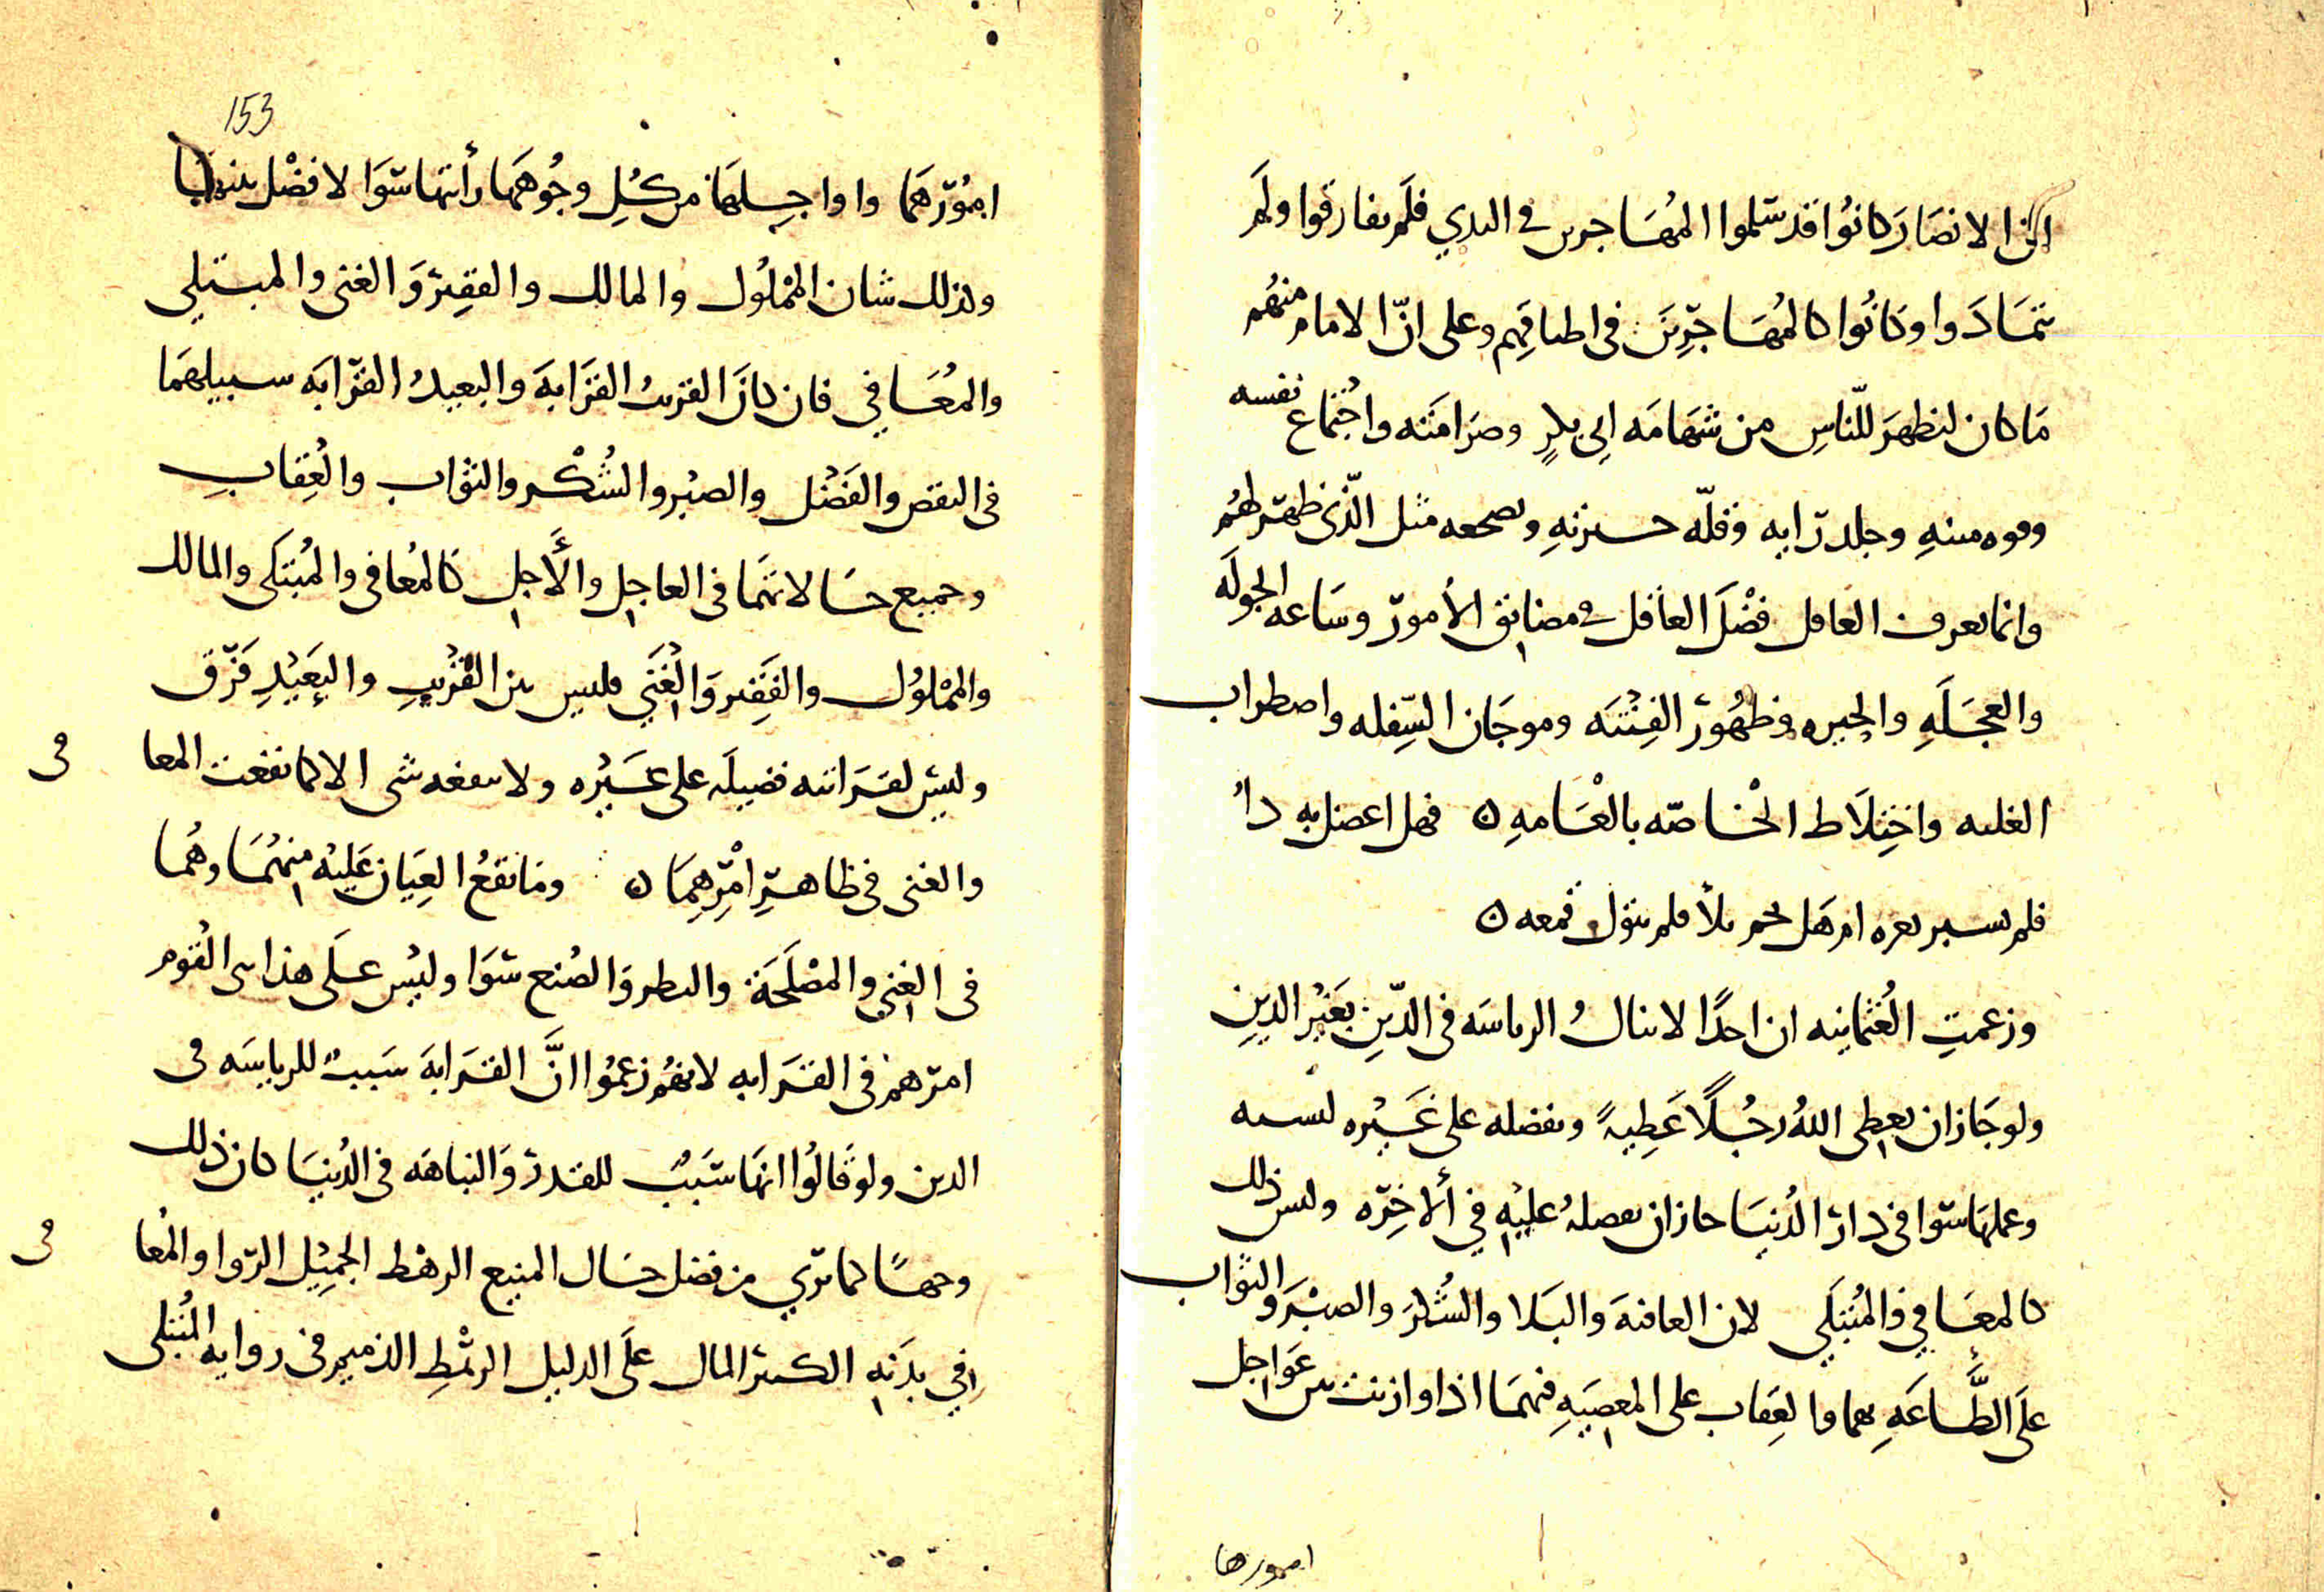 ان الانصار كانوا قد سلموا المهاجرين في البدي فلم يفارقوا ولم
يتمادوا وكانوا كالمهاجرين في اطباقهم وعلى ان الامام منهم
ما كان ليظهر للناس من شهامه ابي بكر وصرامته واجتماع نفسه
وقوه منته وجلد رايه وقله حيرته مثل الذي ظهر لهم
وانما يعرف العاقل فضل العاقل في مضايق الامور وساعه الجوله
والعجله والحيره وظهور الفتنه وموجان السفله واضطراب
الغلبه واختلاط الخاصه بالعامه ن فهل اعضل به داء
فلم ام هل نجم بلا فلم يتول قمعه ن
وزعمت العثمانيه ان احدا لا ينال الرياسه في الدين بغير الدين
ولو جاز ان يعطي الله رجلا عطية ويفضله على غيره لنسبه
وعملها سوا في دار الدنيا جاز ان يفضله عليه في الاخره وليس ذلك
كالمعافي والمبتلي لان العافيه والبلا والشكر والصبر والثواب
على الطاعه بهما والعقاب على المعصيه فهما اذا وازنت بين عواجل
امورها
153
امورهما واواجلهما من كل وجوههما رأيتهما سوا لا فضل بينهما
وكذلك شان المملوك والمالك والفقير والغني والمبتلي
والمعافي فان كان القريب القرابه والبعيد القرابه سبيلهما
في النقص والفضل والصبر والشكر والثواب والعقاب
وجميع حالاتهما في العاجل والأجل كالمعافي والمبتلي والمالك
والمملوك والفقير والغني فليس بين القريب والبعيد فرق
وليس لقرابته فضيله على غيره ولا ينفعه شي الا كما نفعت المعا في
والغني في ظاهر امرهما ن وما يقع العيان عليه منهما وهما
في الغني والمصلحة والنظر والصنع سوا وليس على هذا بنى القوم
امرهم في القرابه لانهم زعموا انّ القرابه سبب للرياسه في
الدين ولو قالوا انها سبب للقدر والنباهه في الدنيا كان ذلك
وجهًا كما تري من فضل حال المنيع الرهط الجميل الروا والمعا في
في بدنه الكثير المال على الذليل الرهط الذميم في روايه المبتلى